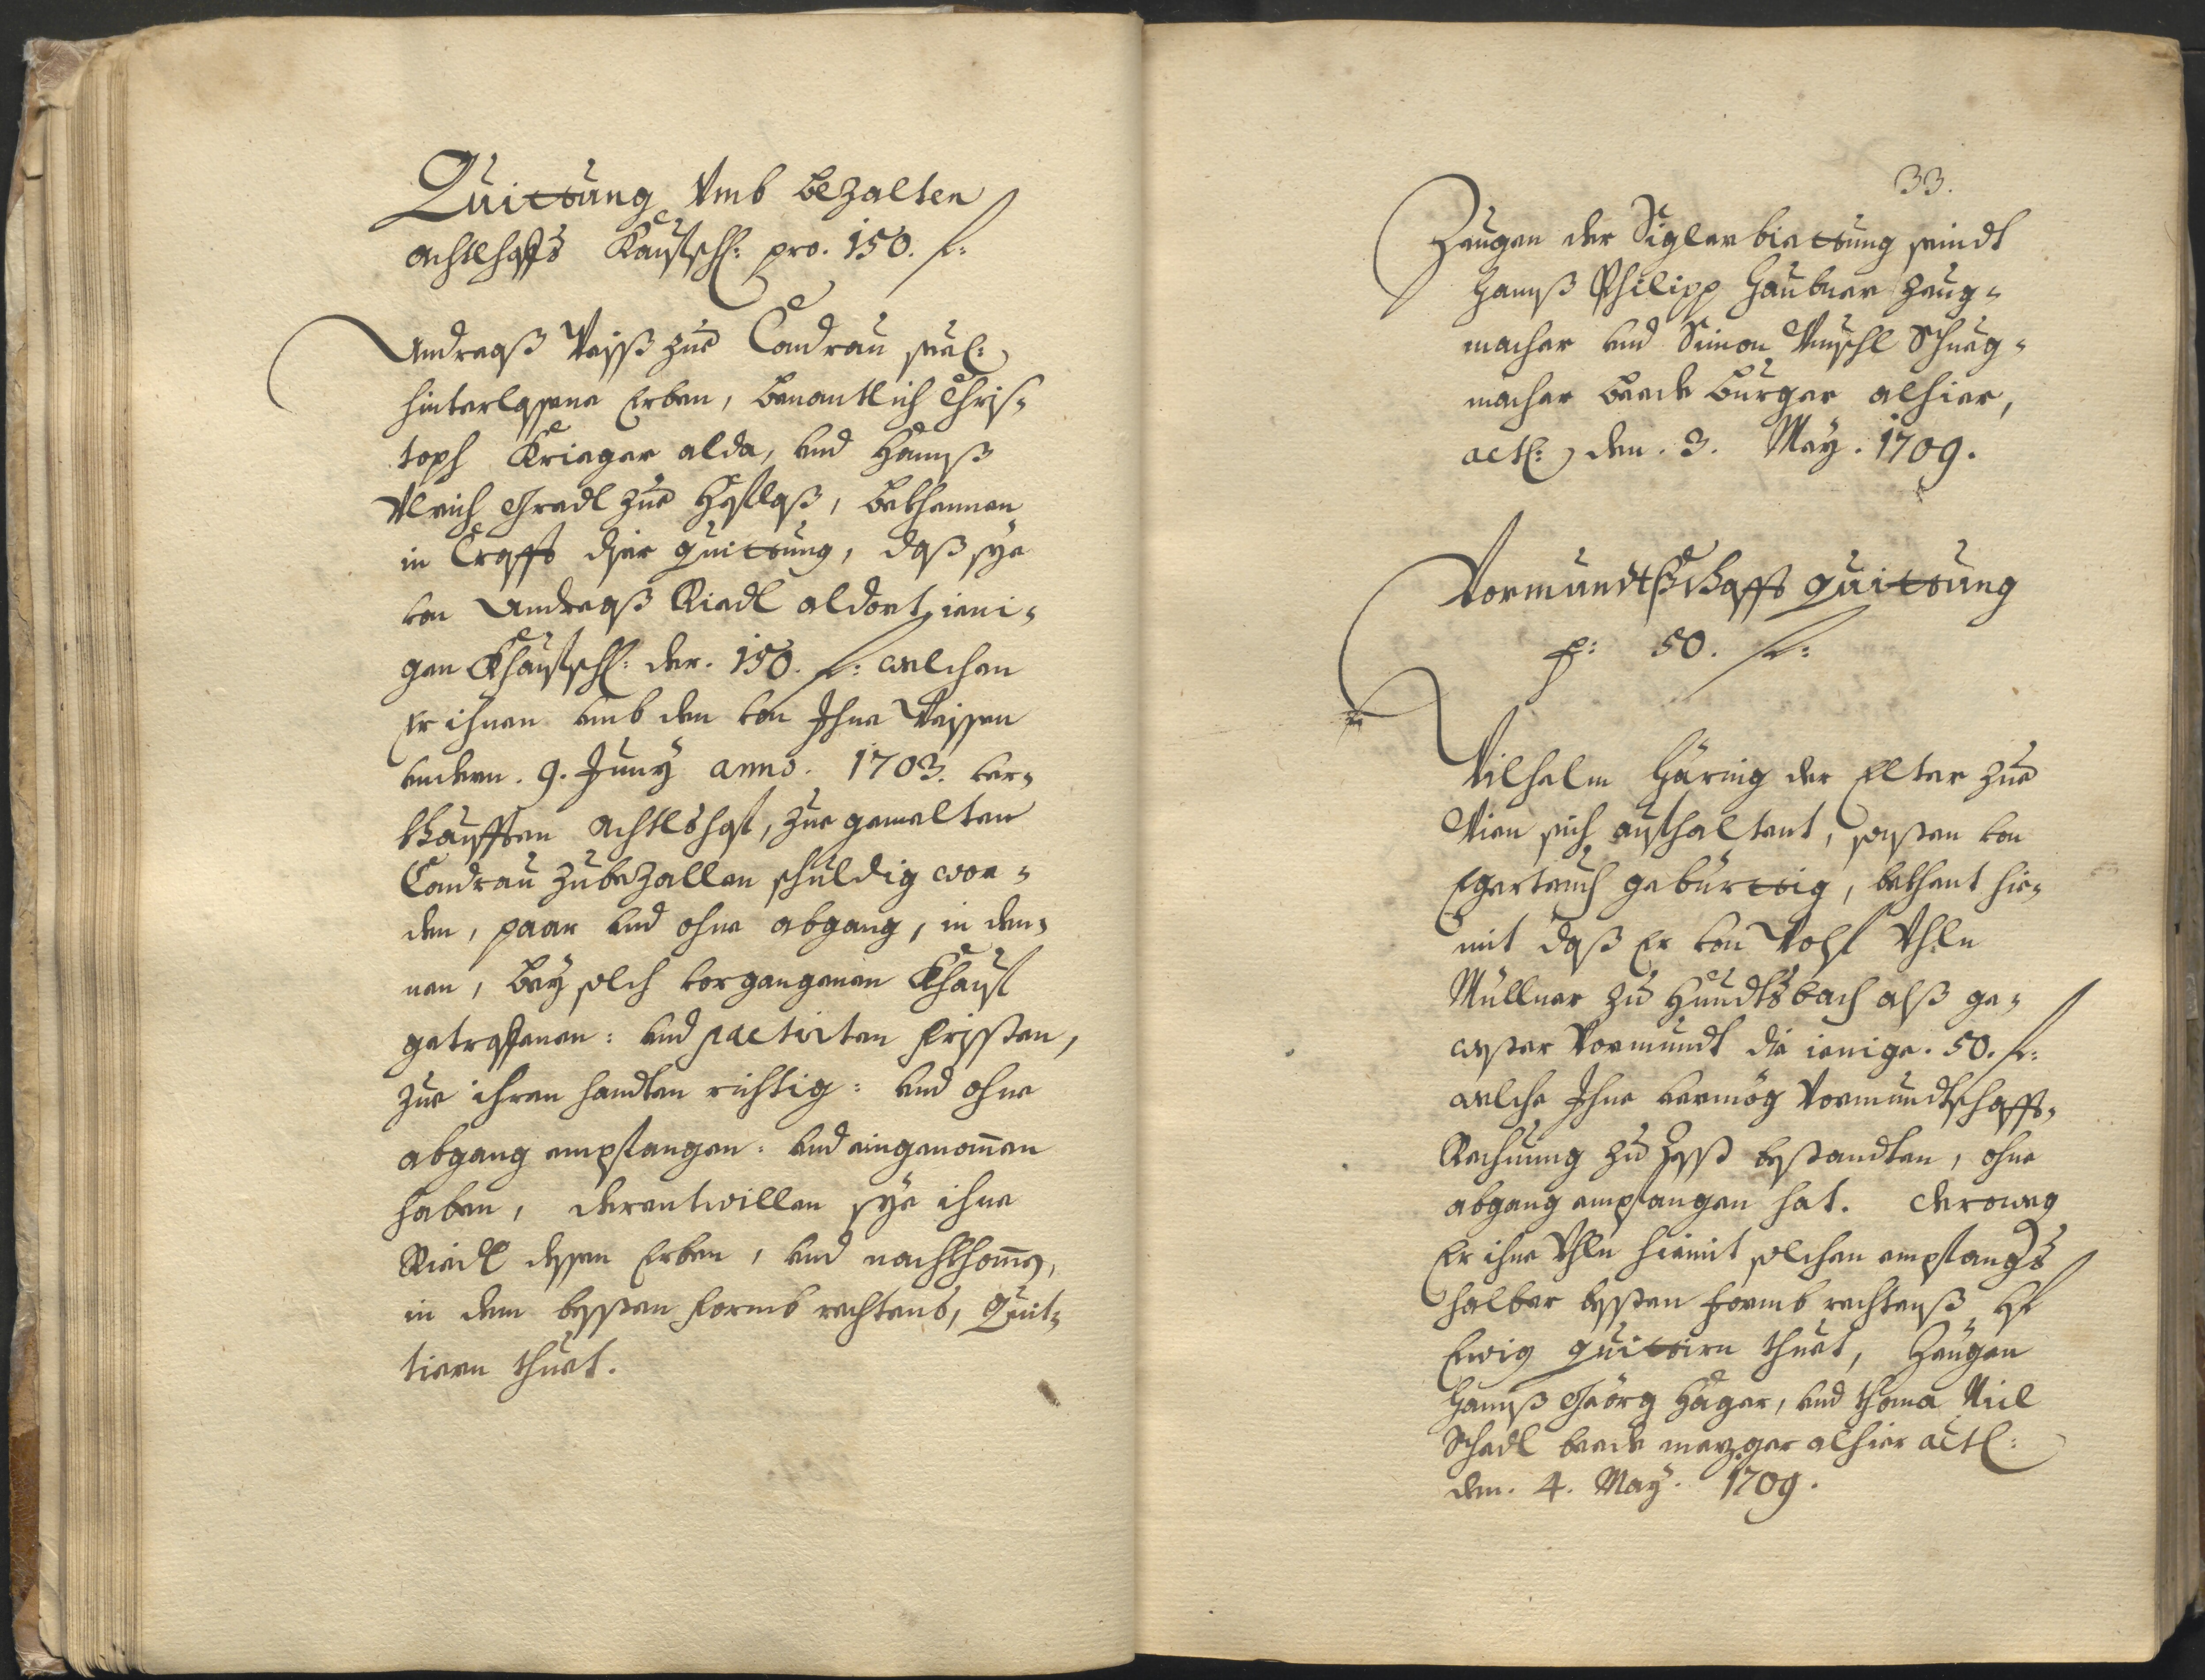 Quittung Vmb bezalten
Achtlhoffs Kauffschl: pro. 150. fl:
Andreaß Veiß zue Condrau seel:
hinterlassene Erben, benantlich Chris-
toph Krieger alda, und Hannß
Ulrich Gradl zue Hoflaß, bekhennen
in Crafft dser quittung, daß sye
von Andreaß Riedl aldort, ieni-
gen Khauffschl: der. 150. fl: welchen
Er ihnen umb den von Ihne Veissen
undern. 9. Juny anno. 1703. ver-
khaufften Achtlshof, zue gemelten
Condrau zubezallen schuldig wor-
den, paar und ohne abgang, in den-
nen, bey solch vorgangenen Khauf
getroffenen: und pactirten fristen,
zue ihren handten richtig: und ohne
abgang empfangen: und eingenomen
haben, derentwillen sye ihne
Riedl dessen Erben, und nachkhomen,
in dem besten formb rechtens, Quit-
tiern thuet.
33.
Zeugen der Siglerbittung seindt
Hannß Philipp Haubner Zeug-
macher und Simon Schueg-
macher beede burger alhier,
actl: den. 3. May. 1709.
Vormundtschafft quittung
p: 50. fl:
Wilhelm Häring der Elter zue
Wien sich aufhaltent, sonsten von
Egerteuch gebürttig, bekhent hie-
mit daß Er von Wolf Uhln
Müllner zu Hundtsbach alß ge-
wester Vormundt die ienige. 50. fl:
welche Ihne vermög Vormundtschaffts-
Rechnung zu Rest bestandten, ohne
abgang empfangen hat. deroweg
Er ihne Uhln hiemit solchen empfangs
halber besten formb rechtenß uf
Ewig quittirn thuet, Zeugen
Hannß Geörg Hager, und Thoma Niel
Schedl beede mezger alhier actl:
den. 4. May. 1709.